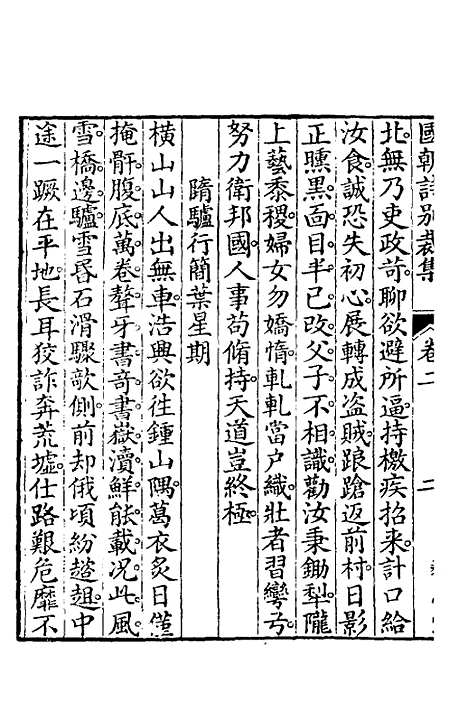 國朝詩別裁集 卷二 二
北無乃吏政苛聊欲避所逼持檄疾招来計口給
汝食誠恐失初心展轉成盗賊踉蹌返前村日影
正曛黑面目半已改父子不相識勸汝秉鋤犁隴
上藝黍稷婦女勿嬌惰軋軋當户織壯者習彎弓
努力衛邦國人事苟脩持天道豈終極
隋驢行簡葉星期
橫山山人出無車浩興欲徃鍾山隅葛衣炙日僅
掩骭腹底萬卷聱牙書竒書嶽瀆鮮能載况此風
雪橋邊驢雪昏石滑驟欹側前却俄頃紛趑趄中
途一蹶在平地長耳狡詐奔荒墟仕路艱危靡不